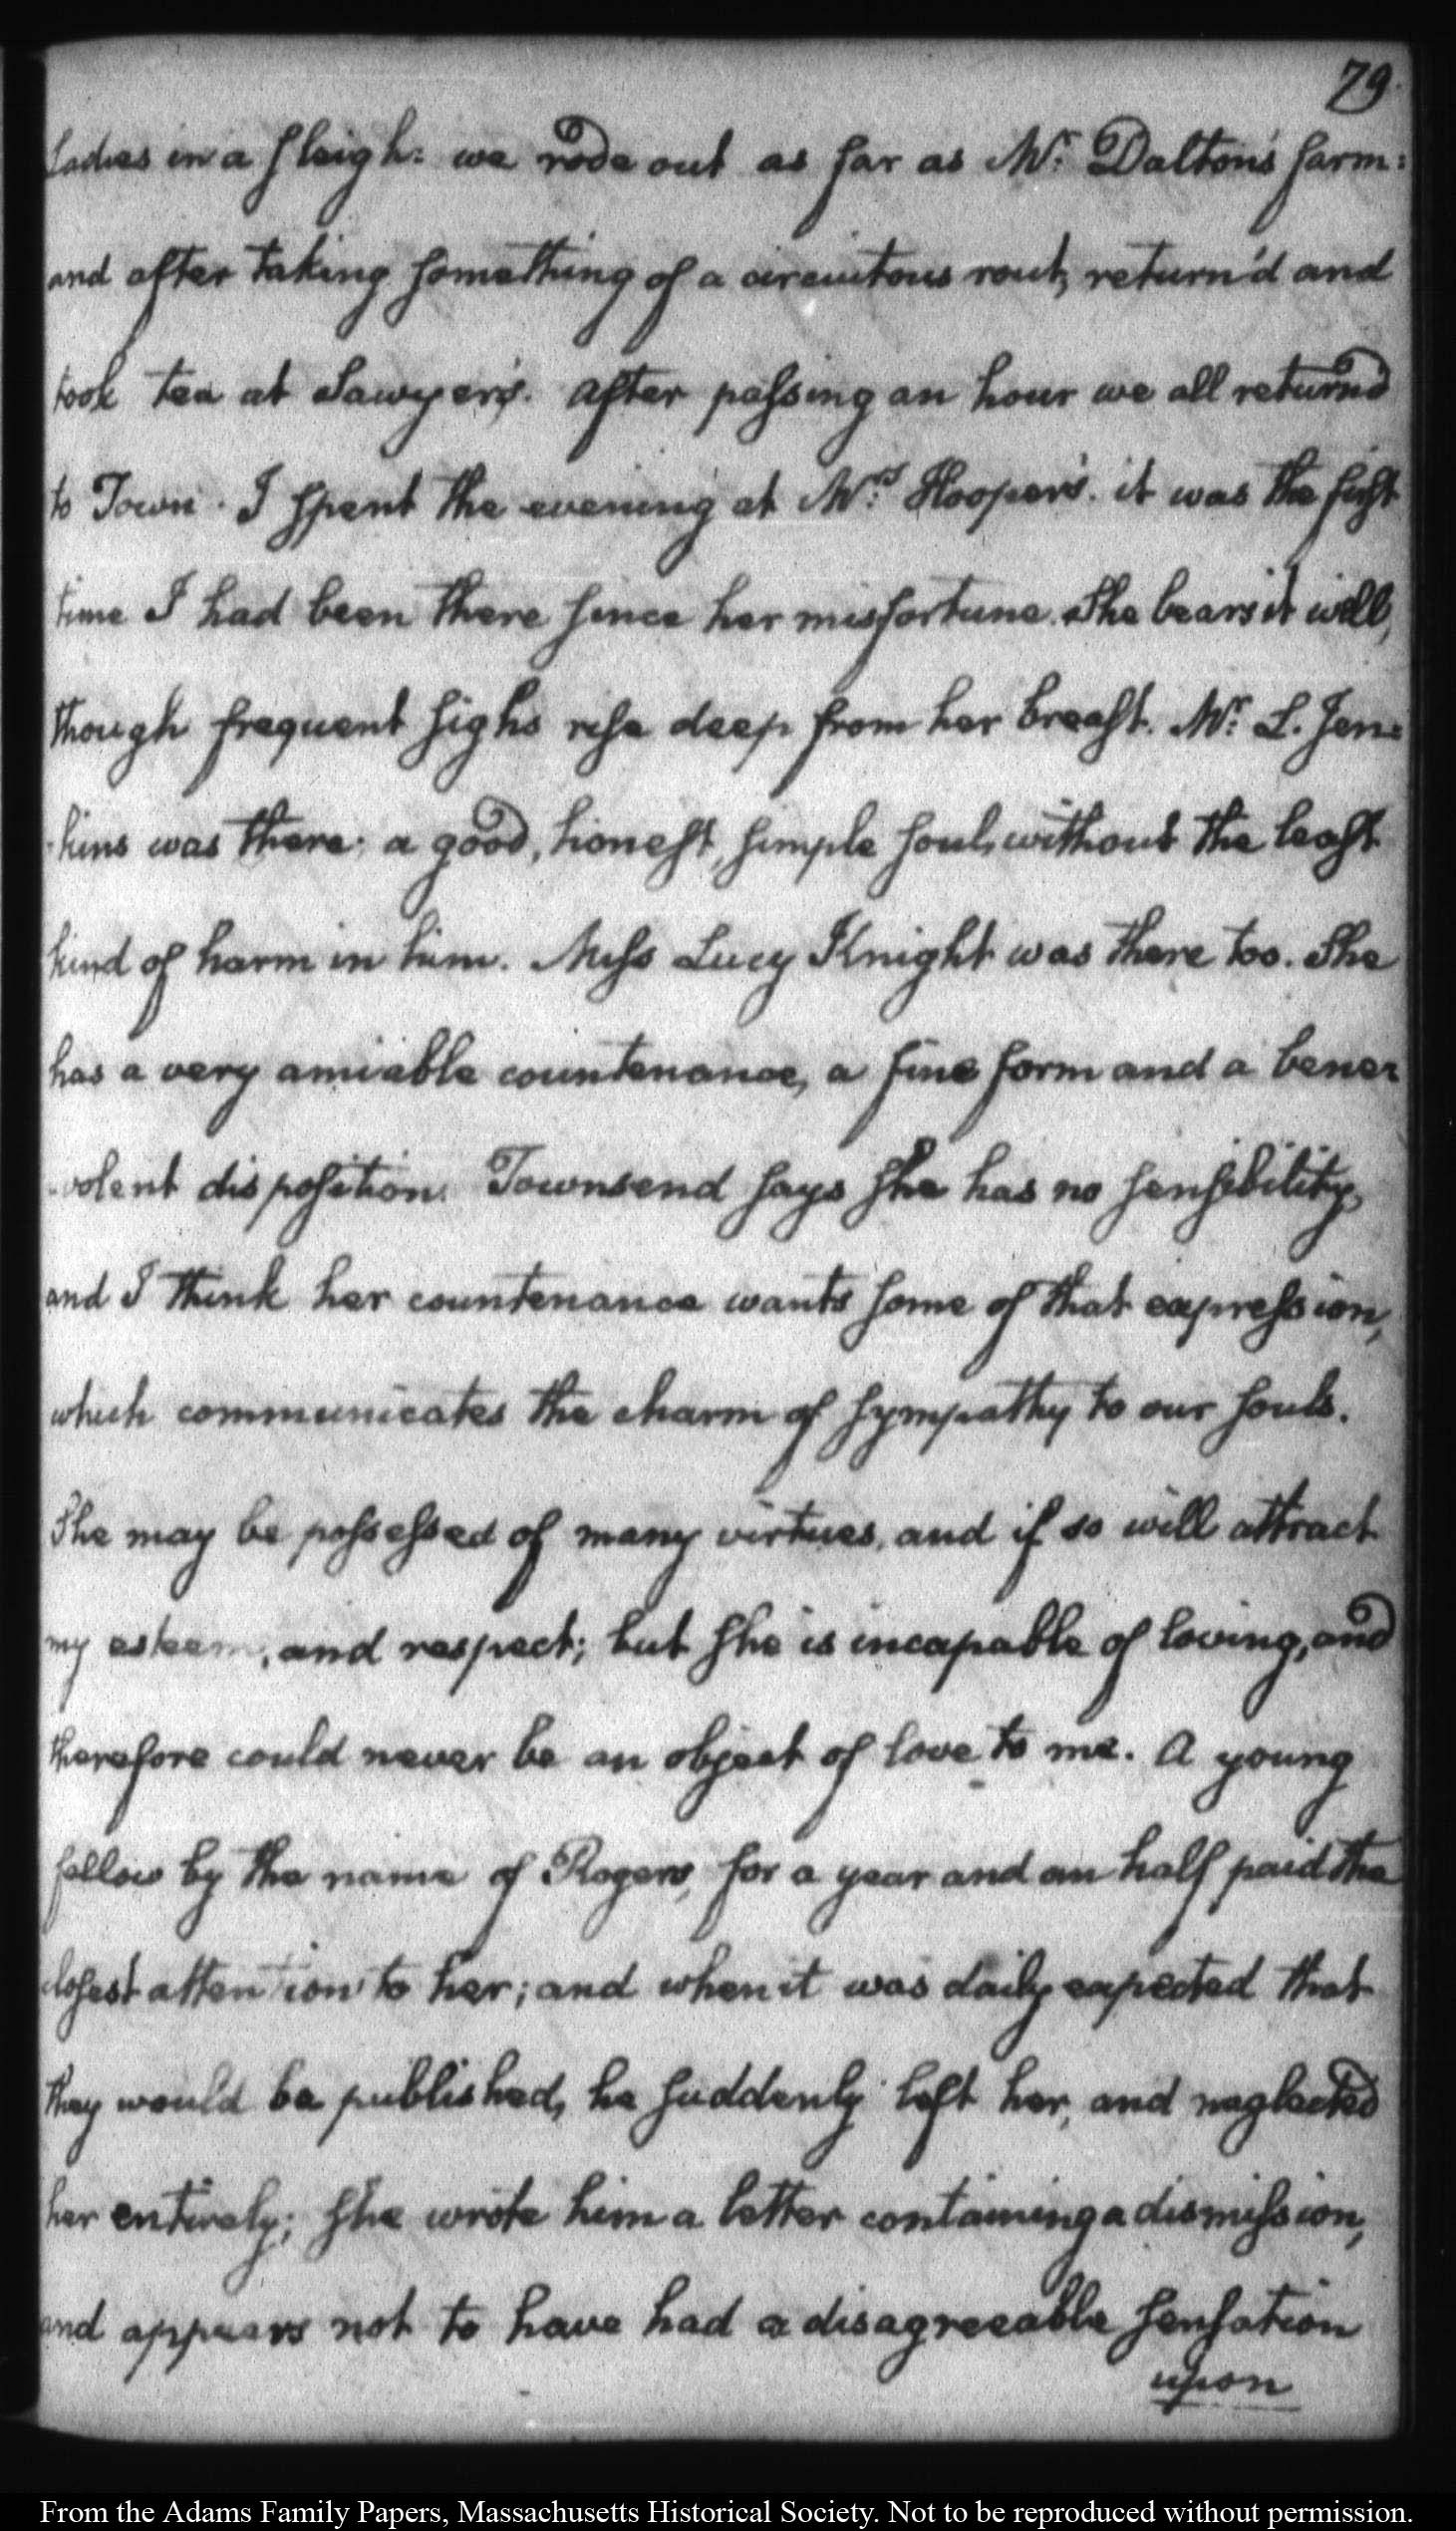 79
Ladies in a sleigh: we rode out as far as Mr. Dalton's farm:
and after taking something of a circuitous rout, return'd and
took tea at Sawyer's. After passing an hour we all return'd
to Town. I spent the evening at Mrs. Hooper's. it was the first
time I had been there since her misfortune. She bears it well,
though frequent sighs rise deep from her breast. Mr. L. Jen:
:kins was there: a good, honest, simple soul, without the least
kind of harm in him. Miss Lucy Knight was there too. She
has a very amiable countenance, a fine form and a bene:
:volent disposition. Townsend says she has no sensibility,
and I think her countenance wants some of that expression,
which communicates the charm of sympathy to our souls.
She may be possessed of many virtues, and if so will attract
my esteem, and respect; but she is incapable of loving, and
therefore could never be an object of love to me. A young
fellow by the name of Rogers, for a year and an half paid the
closest attention to her; and when it was daily expected that
they would be published, he suddenly left her, and neglected
her entirely; she wrote him a letter containing a dismission,
and appears not to have had a disagreeable sensation
upon
From the Adams Family Papers, Massachusetts Historical Society. Not to be reproduced without permission.